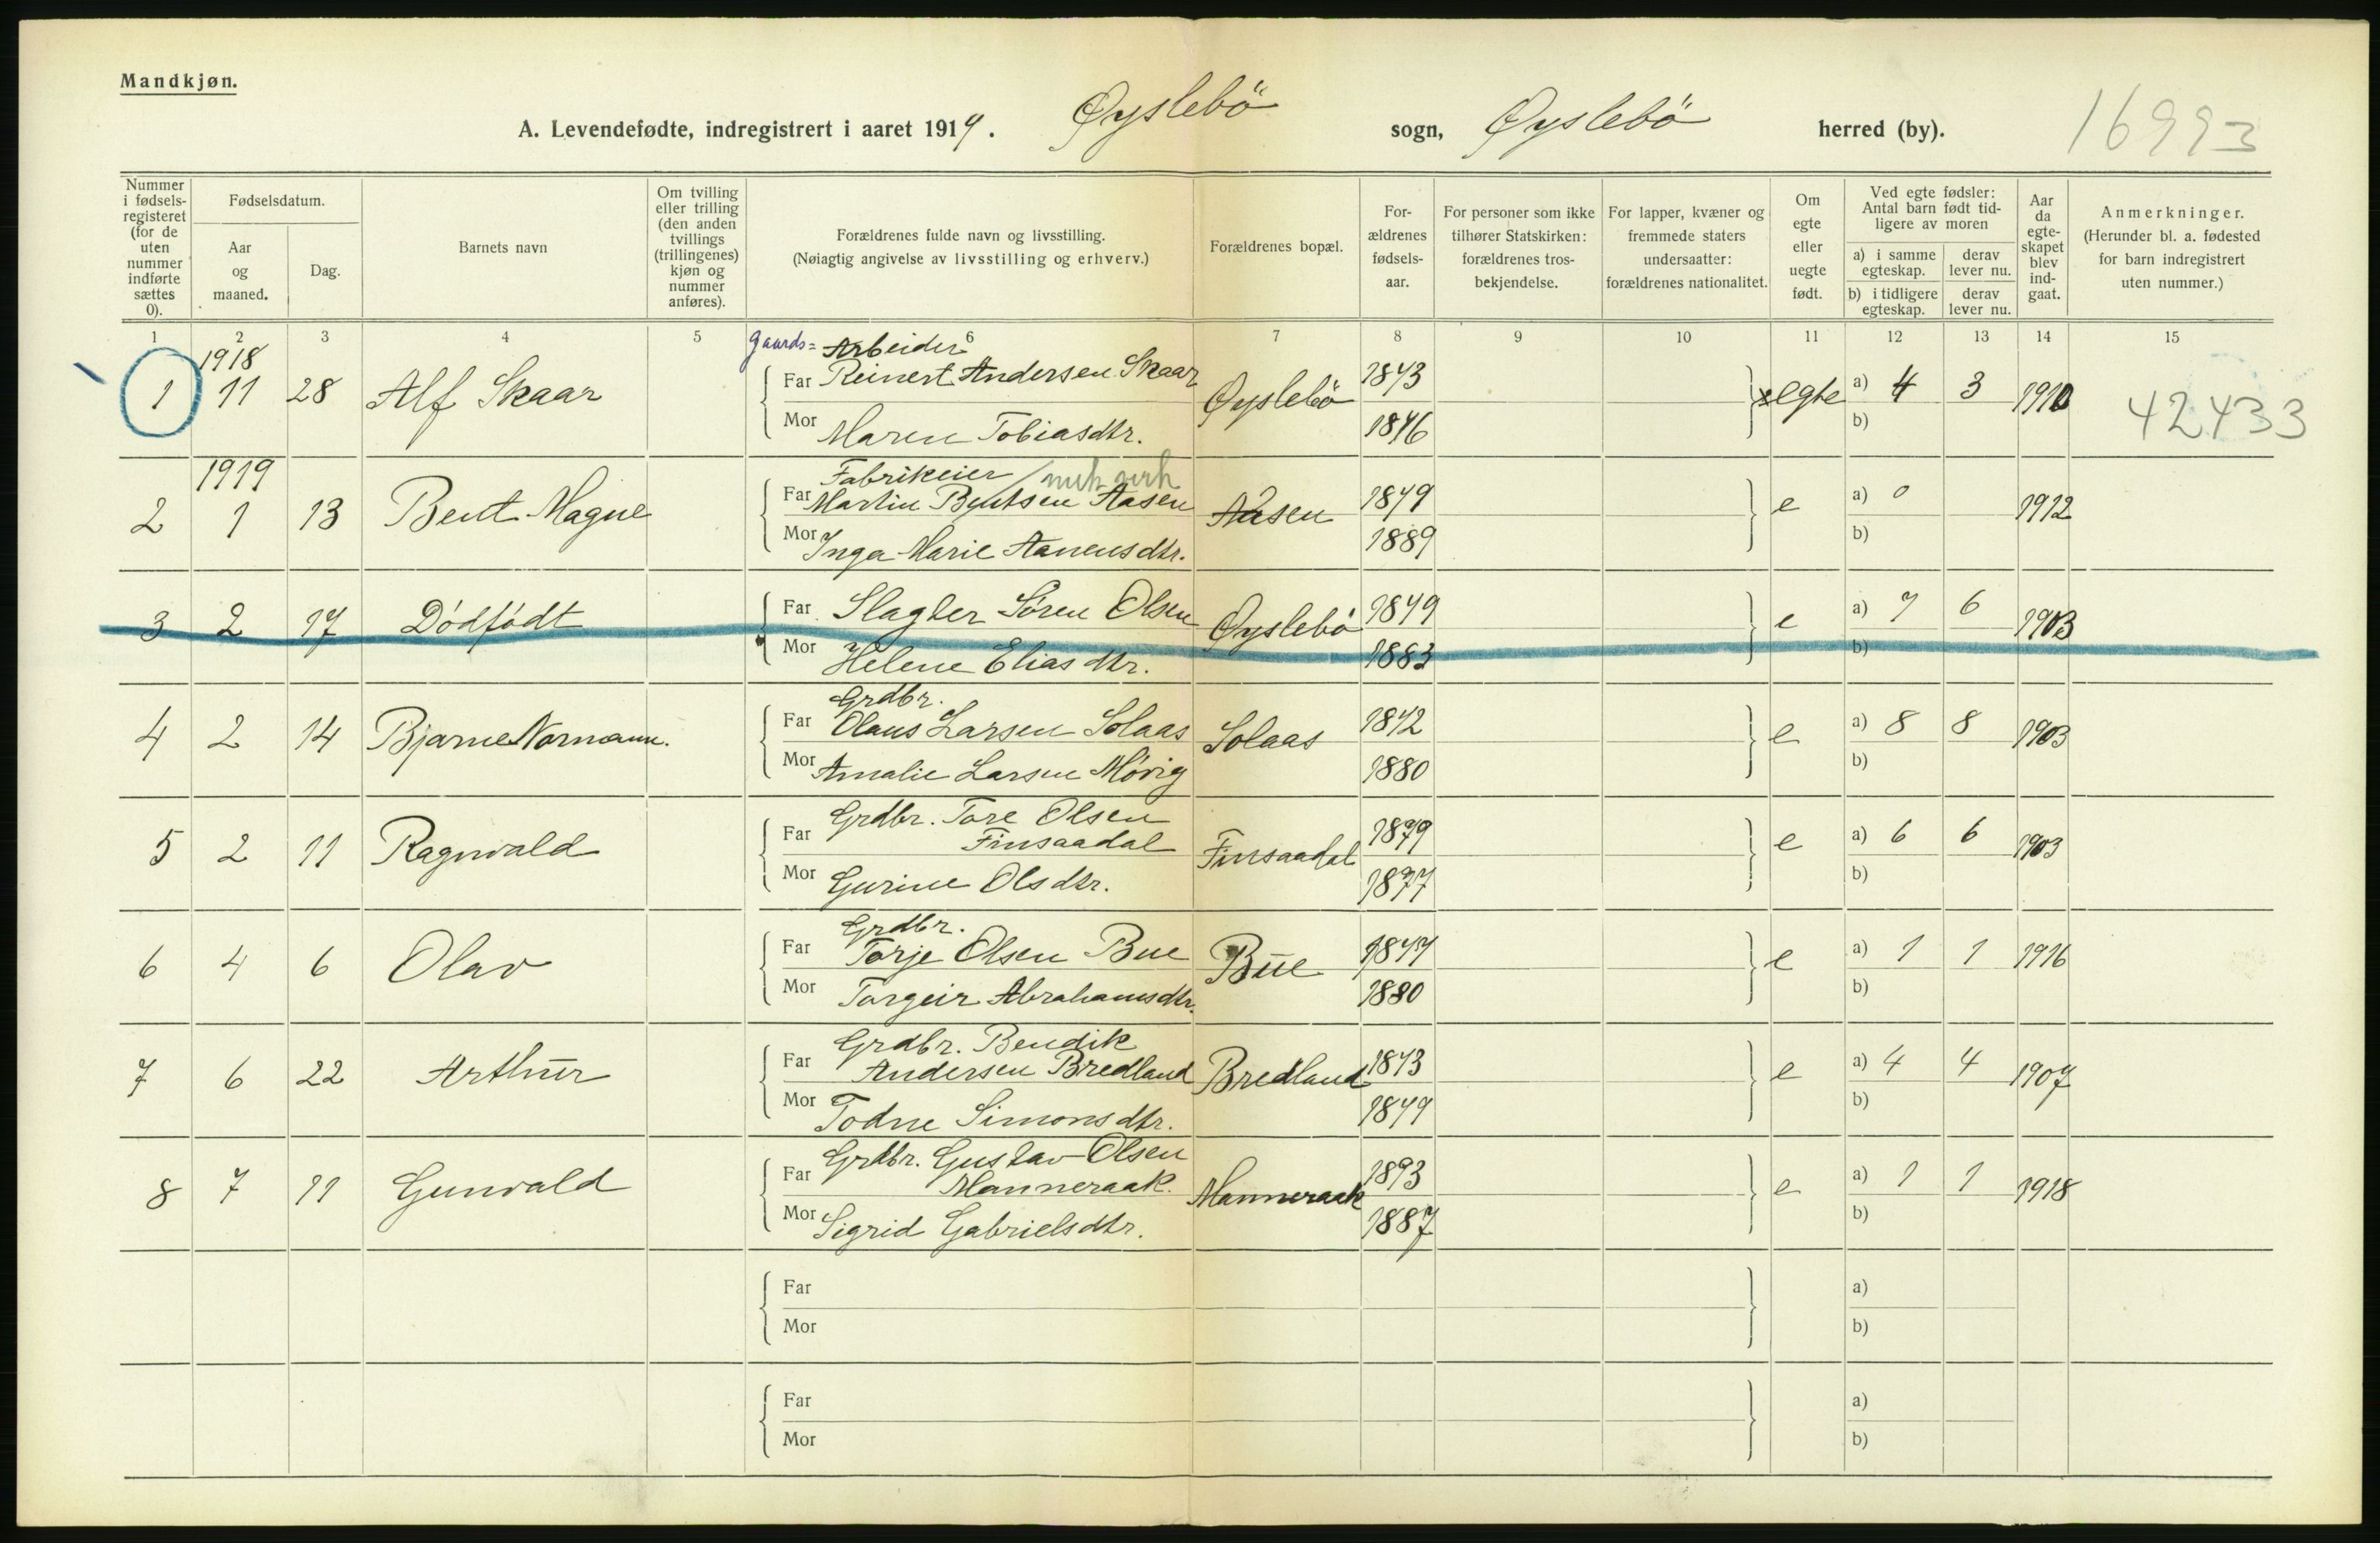 Mandkjøn.
A. Levendefødte, indregistrert i aaret 1919. Øyslebö sogn, Øyslebö herred (by). 16993
Nummer i fødsels-registeret (for de uten nummer indførte sættes 0).
Fødselsdatum.
Aar og maaned.
Dag.
Barnets navn
Om tvilling eller trilling (den anden tvillings (trillingenes) kjøn og nummer anføres).
Forældrenes fulde navn og livsstilling.
(Nøiagtig angivelse av livsstilling og erhverv.)
Forældrenes bopæl.
For-ældrenes fødsels-aar.
For personer som ikke tilhører Statskirken: forældrenes tros-bekjendelse.
For lapper, kvæner og fremmede staters undersaatter: forældrenes nationalitet.
Om egte eller uegte født.
Ved egte fødsler: Antal barn født tid-ligere av moren
a) i samme egteskap.
derav lever nu.
b) i tidligere egteskap.
derav lever nu.
Aar da egte-skapet blev ind-gaat.
Anmerkninger.
(Herunder bl. a. fødested for barn indregistrert uten nummer.)
1 2 3 4 5 6 7 8 9 10 11 12 13 14 15
1918 gaards= Arbeider
1 11 28 Alf Skaar Far Reinert Andersen Skaar Øyslebö egte a) 4 3 1910 42433
Mor Maren Tobiasdtr. b)
1919 Fabrikeier
2 1 13 Bent Magne Far Martin Bentsen Aasen Aasen e a) 0 1912
Mor Inga Marie Aanensdtr. 1889 b)
3 2 17 Dödfödt Far Slagter Sören Olsen Øyslebö e a) 7 6 1903
Mor Helene Eliasdtr. 1883 b)
Grdbr.
4 2 14 Bjarne Normann. Far Olaus Larsen Solaas Solaas e a) 8 8 1903
Mor Amalie Larsen Mörig 1880 b)
Grdbr. Tore Olsen
5 2 11 Ragnvald Far Finsaadal Finsaadal 1879 e a) 6 6 1903
Mor Gurine Olsdtr. 1877 b)
Grdbr.
6 4 6 Olav Far Torje Olsen Bue Bue e a) 1 1 1916
Mor Torgeir Abrahamsdtr. 1880 b)
Grdbr. Bendik
7 6 22 Arthur Far Andersen Bredland Bredland e a) 4 4 1907
Mor Todne Simonsdtr. b)
Grdbr. Gustav Olsen
8 7 11 Gunvald Far Manneraak. Manneraak 1893 e a) 1 1 1918
Mor Sigrid Gabrielsdtr. 1887 b)
Far a)
Mor b)
Far a)
Mor b)